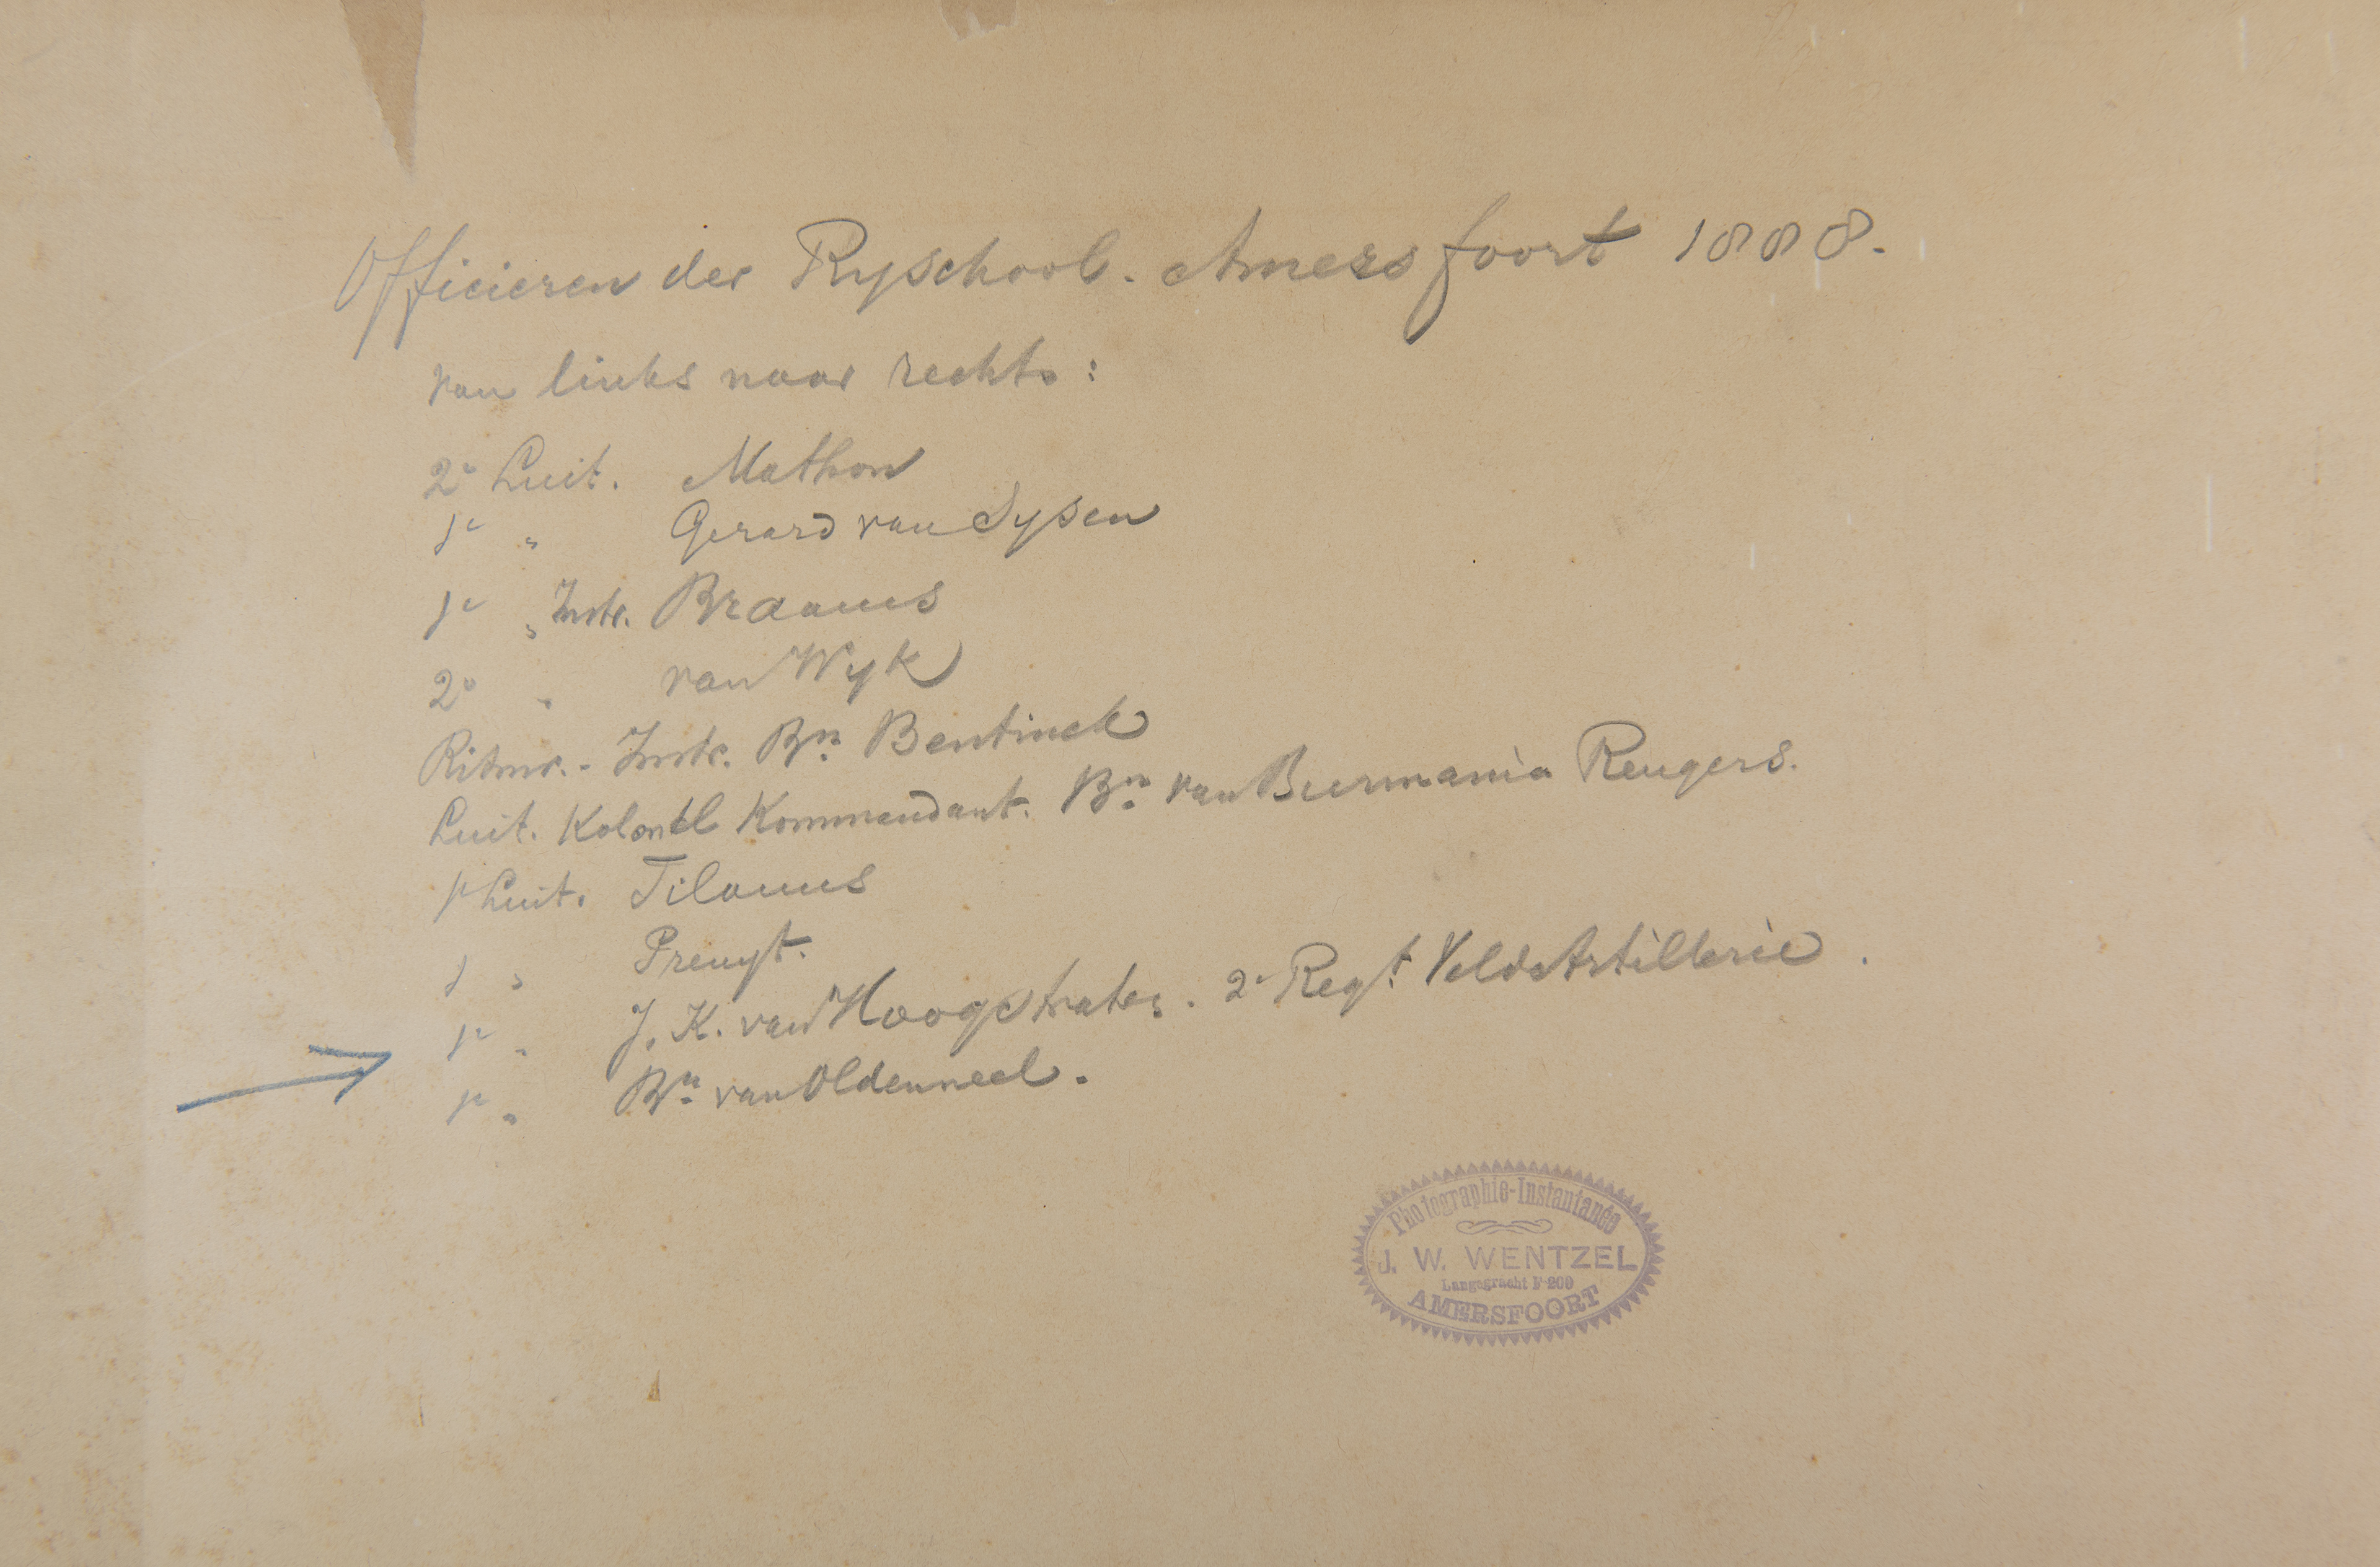 Officieren der Ryschool. Amersfoort 1888.
van links naar rechts:
2e Luit. Mathon
1e " Gerard van Sypen
1e " Instr. Braams
2e " van Wyk
Ritmr. - Instr. Bn. Bentinck
Luit. Kolontl Kommandant. Bn. van Burmania Rengers.
1e Luit. Tilanus
1 " Preuyt.
1e " J. K. van Hoogstraten. 2e Regt. VeldArtillerie.
1e " Bn. van Oldenneel.
Photographie-Instantanée
J. W. WENTZEL
Langegracht F 200
AMERSFOORT